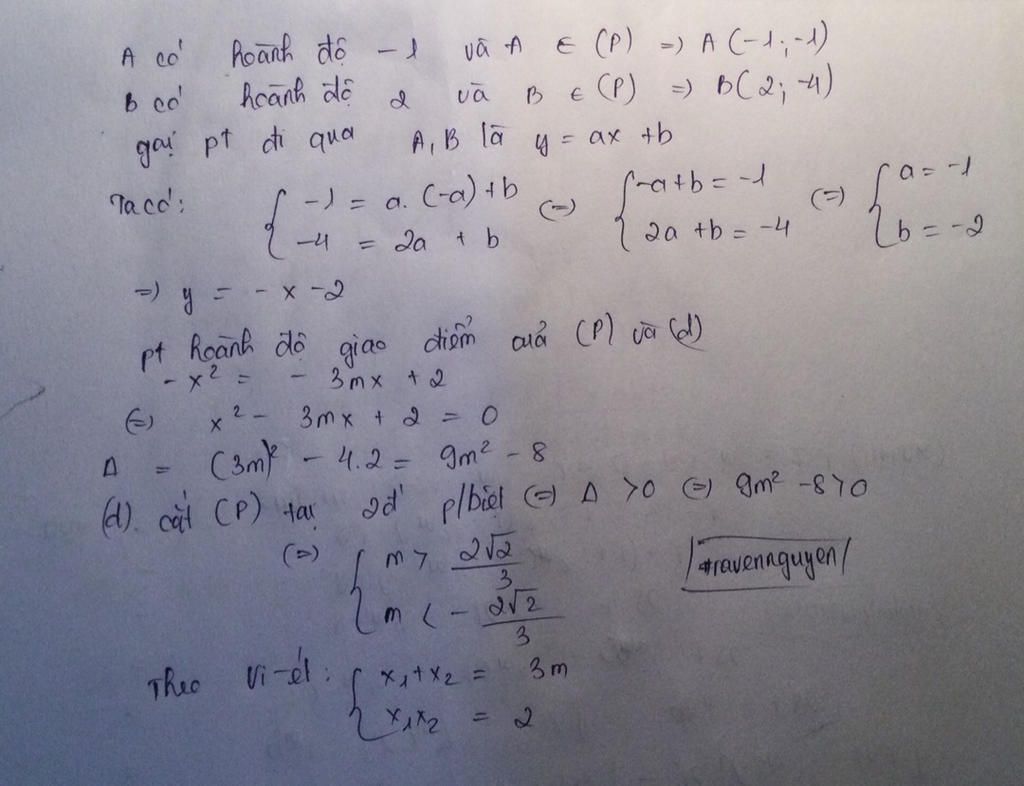 A có hoành độ -1 và A ∈ (P) => A(-1;-1)
B có hoành độ 2 và B ∈ (P) => B(2;-4)
gọi pt đi qua A,B là y = ax + b
Ta có: { -1 = a.(-a)+b (=) { -a+b = -1 (=) { a = -1
-4 = 2a + b 2a + b = -4 b = -2
=> y = -x -2
pt hoành độ giao điểm của (P) và (d)
-x² = - 3mx + 2
(=) x² - 3mx + 2 = 0
Δ = (3m)² - 4.2 = 9m² - 8
(d) cắt (P) tại 2đ' p/biệt (=) Δ > 0 (=) 9m² - 8 > 0
(=) { m > 2√2/3
m < - 2√2/3
#ravennguyen
Theo Vi-ét: { x₁+x₂ = 3m
x₁x₂ = 2